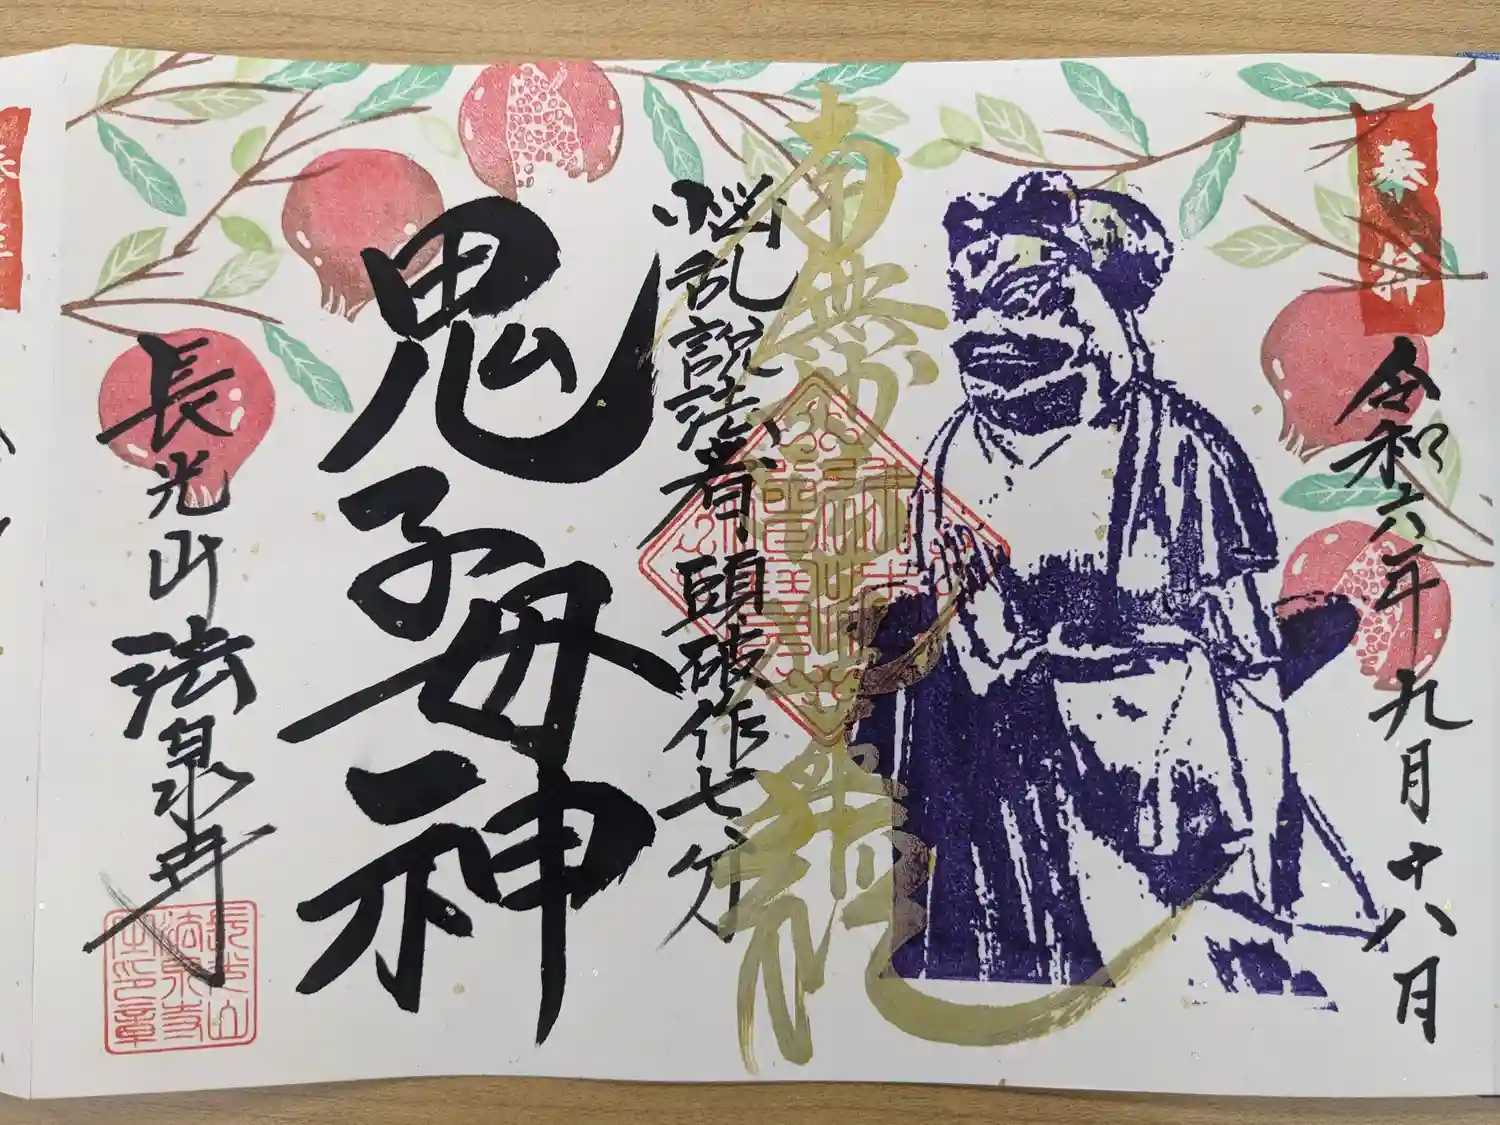 奉拝
令和六年九月十八月
南無妙法蓮華経
悩乱説法者頭破作七分
鬼子母神
長光山法泉寺
長光山
法泉寺
之印章